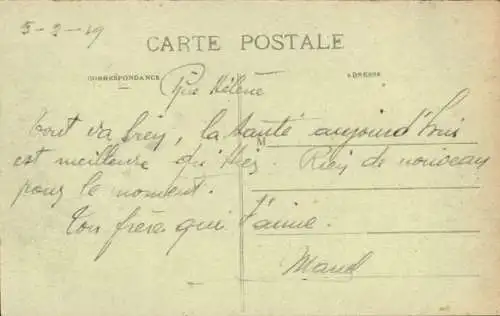 5-2-19
CARTE POSTALE
CORRESPONDANCE
ADRESSE
Hélène
tout va bien, la santé aujourd'hui
M
est meilleure qu'hier. Rien de nouveau
pour le moment.
Ton frère qui t'aime.